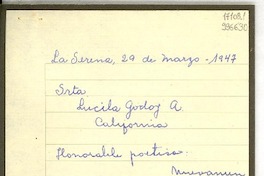 La Serena, 29 de marzo - 1947
Srta
Lucila Godoy A.
California
Honorable poetisa: